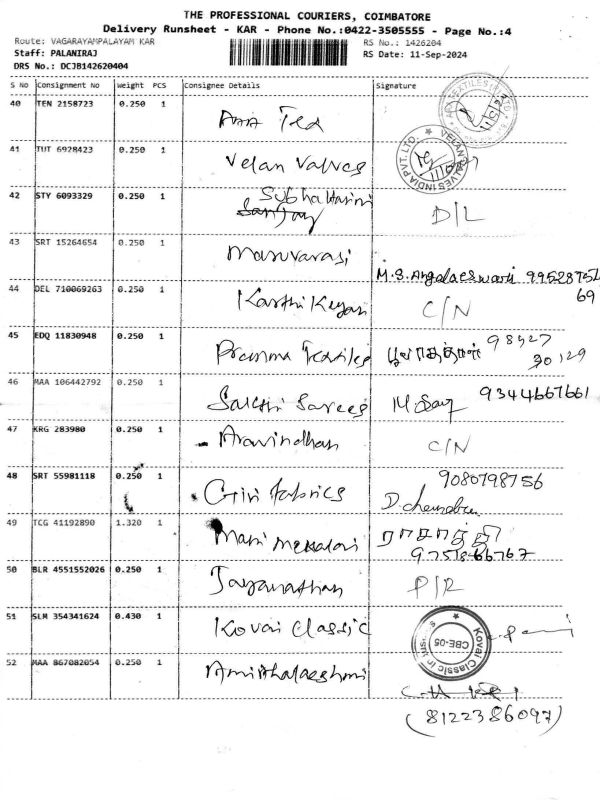 THE PROFESSIONAL COURIERS, COIMBATORE
Delivery Runsheet - KAR - Phone No.:0422-3505555 - Page No.:4
Route: VAGARAYAMPALAYAM KAR RS No.: 1426204
Staff: PALANIRAJ RS Date: 11-Sep-2024
DRS No.: DCJB142620404
S No Consignment No Weight PCS Consignee Details Signature
40 TEN 2158723 0.250 1
41 TUT 6928423 0.250 1 Velan Valves VELAN VALVES INDIA PVT. LTD.
42 STY 6093329 0.250 1 Subha Harini D/L
Sanjay
43 SRT 15264654 0.250 1 Maruvarasi
M.S. Angalaeswari
44 DEL 710069263 0.250 1 Karthikeyan C/N
69
45 EDQ 11830948 0.250 1 Premma Textiles 98427
30129
46 MAA 106442792 0.250 1 Sakthi Sarees 9344667661
47 KRG 283980 0.250 1 Aravindhan C/N
48 SRT 55981118 0.250 1 Giri Fabrics 9080798756
49 TCG 41192890 1.320 1 Mani Mekalai ராசாத்தி
9751866767
50 BLR 4551552026 0.250 1 Jayanathan
51 SLM 354341624 0.430 1 Kovai Classic Kovai Classic CBE-05
52 MAA 867082054 0.250 1
(8122386097)